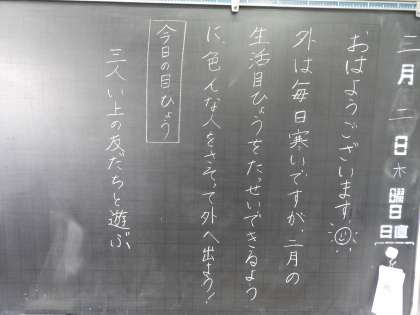 二月二日木曜日
日直
おはようございます
外は毎日寒いですが、二月の
生活目ひょうをたっせいできるよう
に、色んな人をさそって外へ出よう!
今日の目ひょう
三人い上の友だちと遊ぶ。